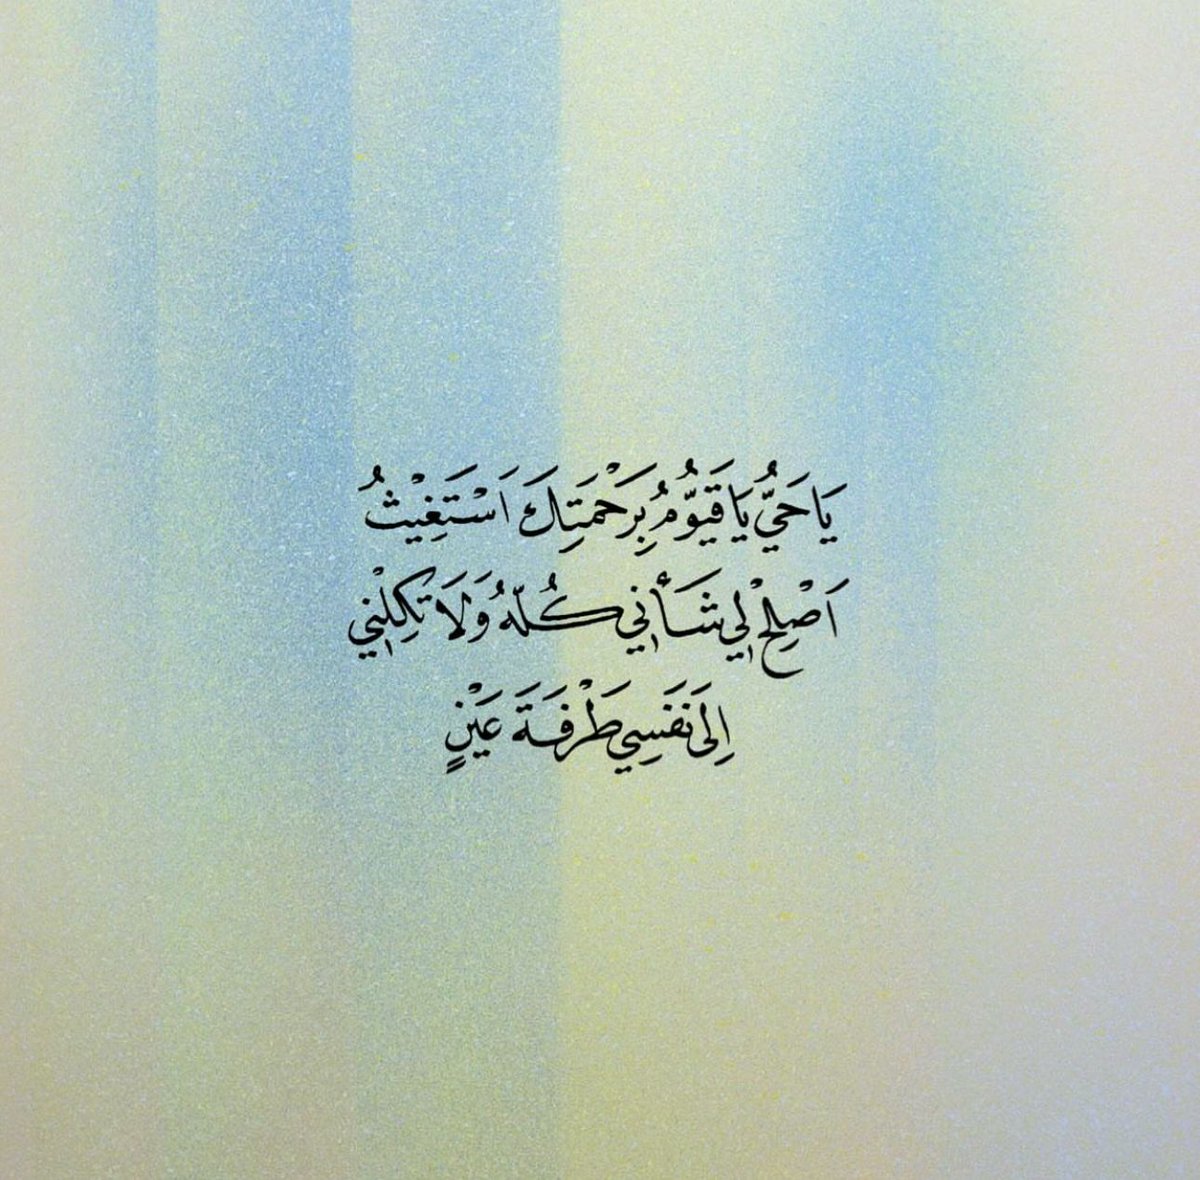 يَا حَيُّ يَا قَيُّوْمُ بِرَحْمَتِكَ اَسْتَغِيْثُ
اَصْلِحْ لِي شَأنِي كُلّهُ وَلَا تَكِلْنِي
اِلَى نَفَسِي طَرْفَةَ عَيْنٍ